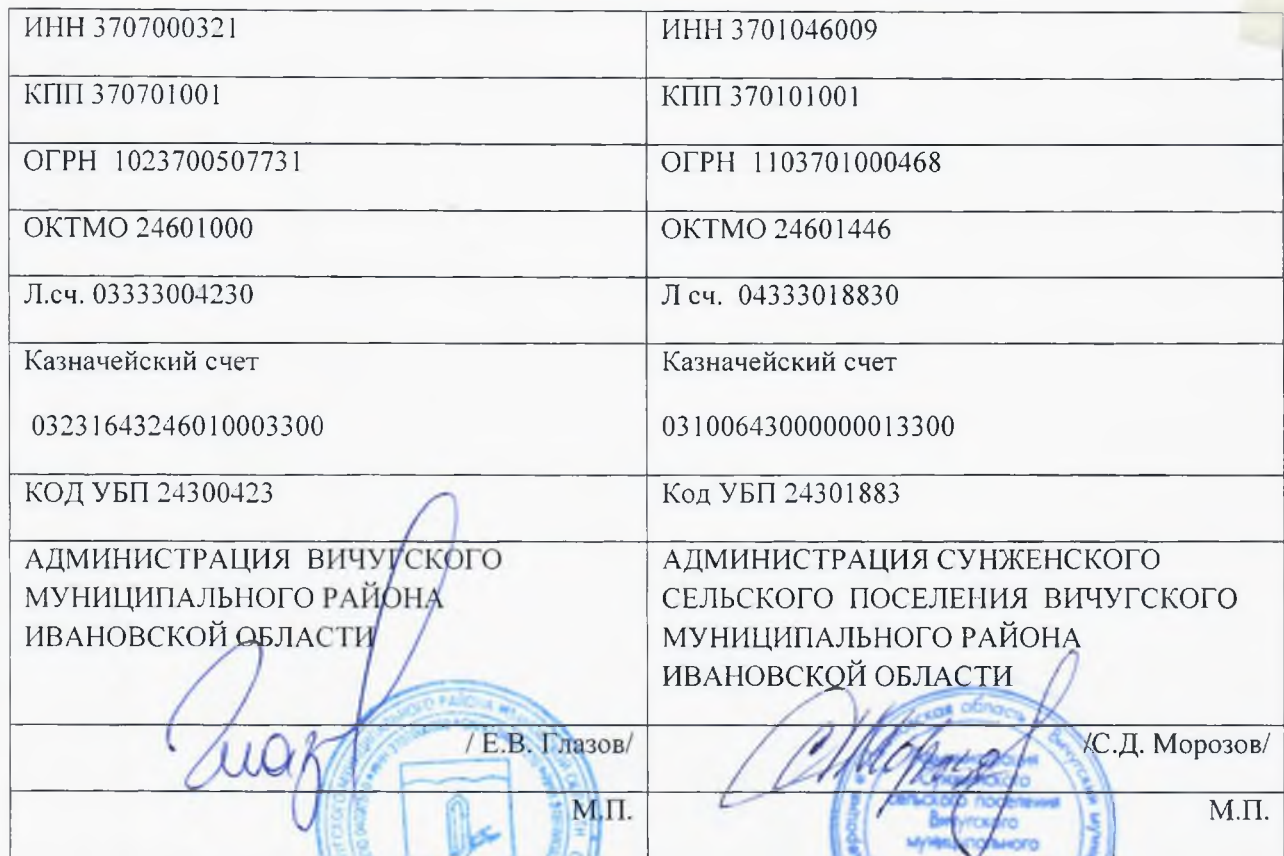 ИНН 3707000321
ИНН 3701046009
КПП 370701001
КПП 370101001
ОГРН 1023700507731
ОГРН 1103701000468
ОКТМО 24601000
ОКТМО 24601446
Л.сч. 03333004230
Л сч. 04333018830
Казначейский счет
03231643246010003300
Казначейский счет
03100643000000013300
КОД УБП 24300423
Код УБП 24301883
АДМИНИСТРАЦИЯ ВИЧУГСКОГО
МУНИЦИПАЛЬНОГО РАЙОНА
ИВАНОВСКОЙ ОБЛАСТИ
АДМИНИСТРАЦИЯ СУНЖЕНСКОГО
СЕЛЬСКОГО ПОСЕЛЕНИЯ ВИЧУГСКОГО
МУНИЦИПАЛЬНОГО РАЙОНА
ИВАНОВСКОЙ ОБЛАСТИ
/ Е.В. Глазов/
/С.Д. Морозов/
М.П.
М.П.
сельского поселения
Вичугского
муниципального